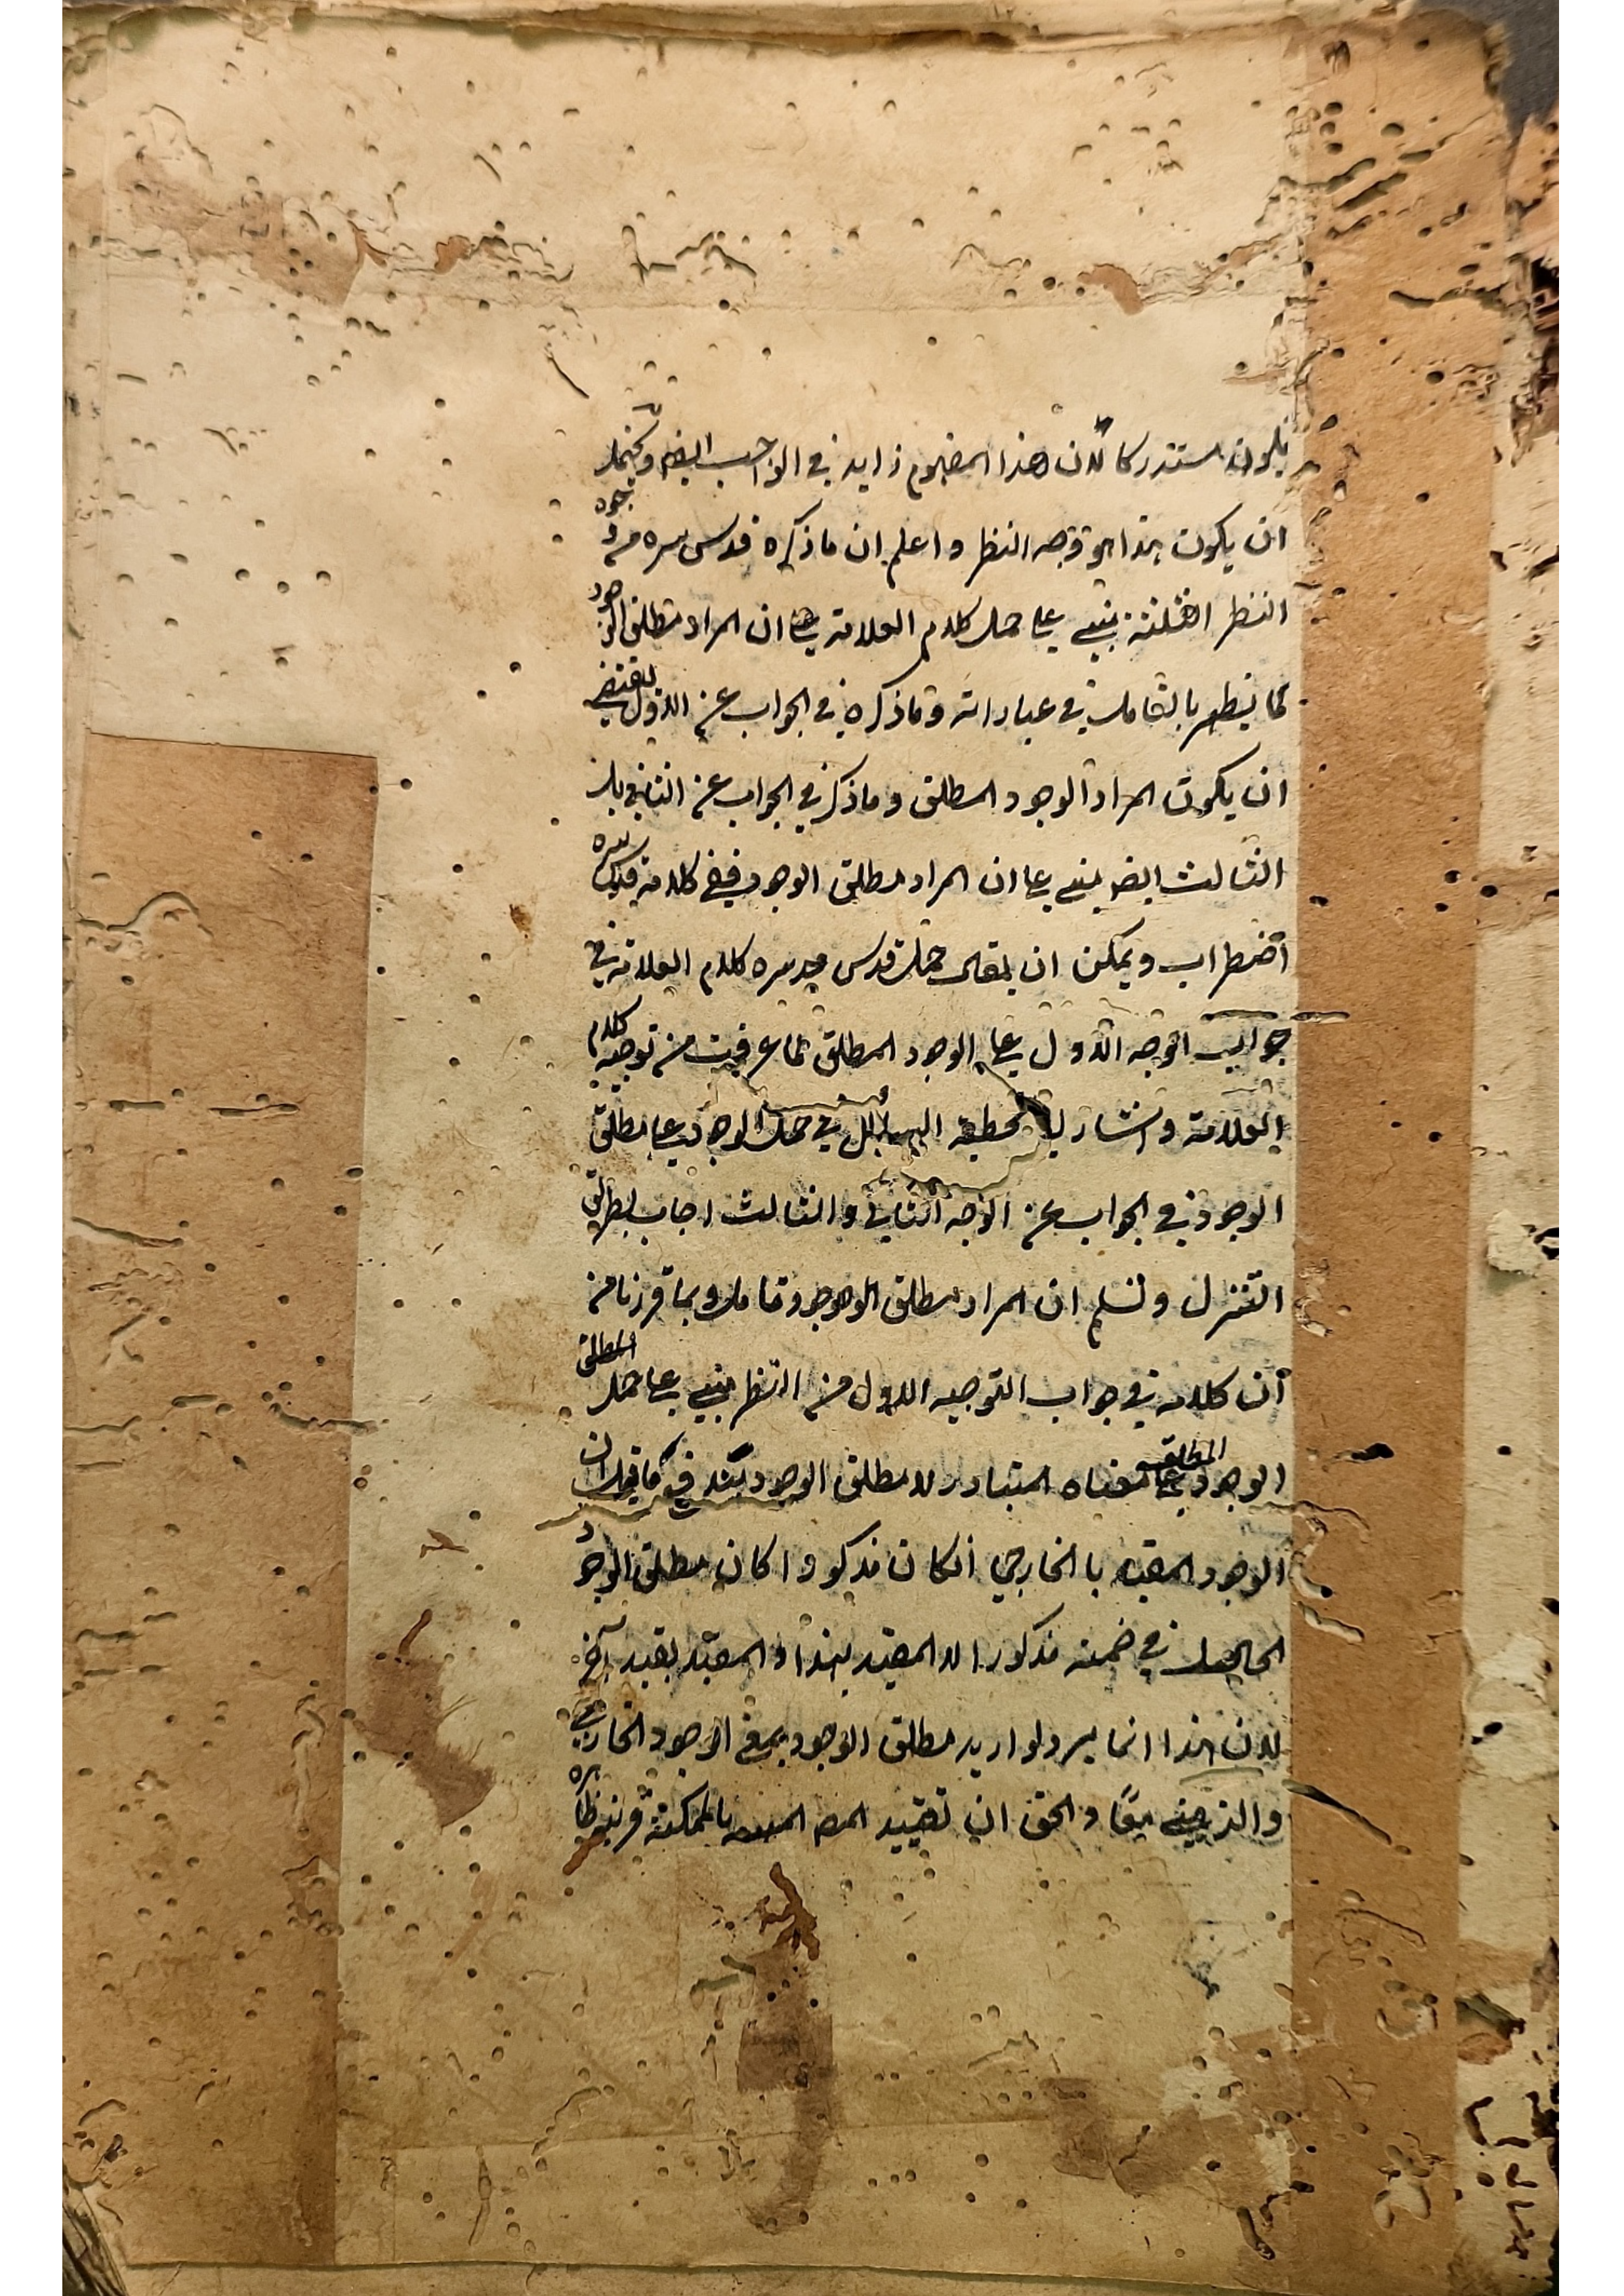 فيكون مستدركا لان هذا المفهوم زايد في الواجب ايضا ويحتمل
ان يكون هذا هو وجه النظر واعلم ان ما ذكره قدس سره من وجوه
النظر الثلثة يبتني على حمل كلام العلامة على ان المراد مطلق الوجود
كما يظهر بالتامل في عباراته وما ذكره في الجواب عن الاول يقتضي
ان يكون المراد الوجود المطلق وما ذكر في الجواب عن الثاني بل
الثالث ايضا يبتني على ان المراد مطلق الوجود ففي كلامه قدس سره
اضطراب ويمكن ان يقال حمل قدس سره كلام العلامة في
جواب الوجه الاول على الوجود المطلق كما عرفت من توجيه كلام
العلامة واشار الى تخطية السائل في حمل الوجود على مطلق
الوجود في الجواب عن الوجه الثاني والثالث اجاب بطريق
التنزل وتسليم ان المراد مطلق الوجود وتامل وبما قررنا من
ان كلامه في جواب التوجيه الاول من النظر يبتني على حمل المطلق
الوجود المطلق على معناه المتبادر لا مطلق الوجود يندفع ما قيل ان
الوجود المقيد بالخارجي اذا كان مذكورا كان مطلق الوجود
الحاصل في ضمنه مذكورا لا المقيد بهذا والمقيد بقيد آخر
لان هذا انما يرد لو اريد مطلق الوجود يعني الوجود الخارجي
والذهني معًا والحق ان تقييد المص بالممكنة قرينة ظاهرة